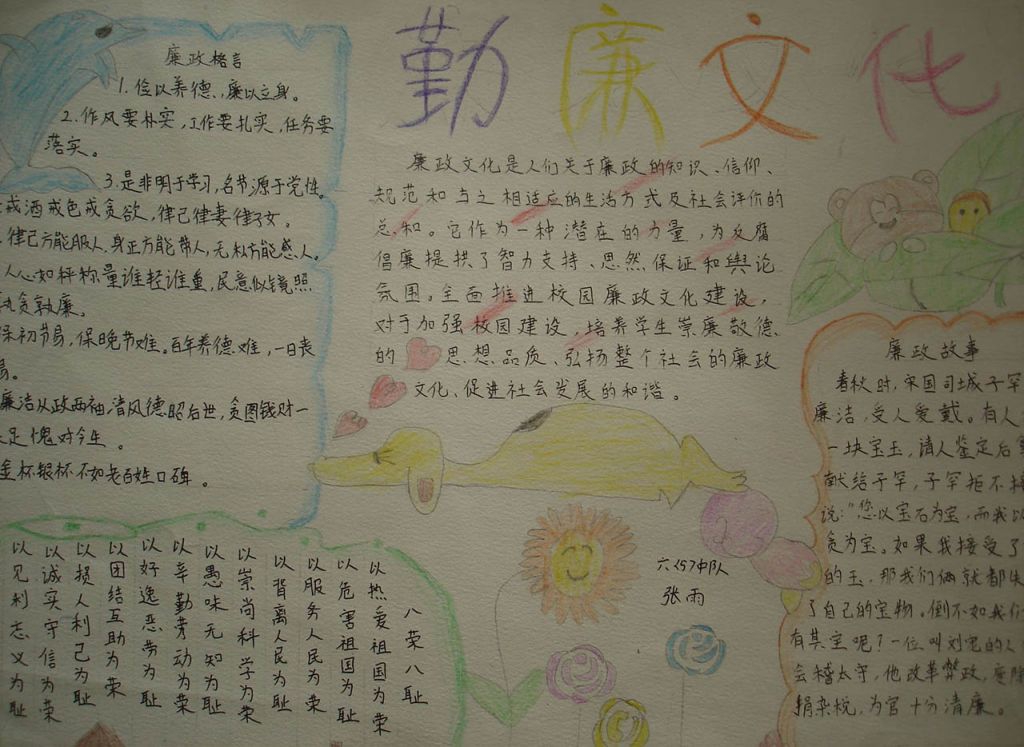 勤廉文化
廉政格言
1. 俭以养德,廉以立身。
2.作风要朴实,工作要扎实,任务要
落实。
3.是非明于学习,名节源于党性。
戒酒戒色戒贪欲,律己律妻律子女。
律己方能服人,身正方能带人,无私方能感人。
人心如秤称量谁轻谁重,民意似镜照
孰贪孰廉。
保初节易,保晚节难。百年养德难,一日丧
易。
廉洁从政两袖清风德昭后世,贪图钱财一
足愧对今生。
金杯银杯不如老百姓口碑。
廉政文化是人们关于廉政的知识、信仰、
规范和与之相适应的生活方式及社会评价的
总和。它作为一种潜在的力量,为反腐
倡廉提拱了智力支持、思然保证和舆论
氛围。全面推进校园廉政文化建设,
对于加强校园建设,培养学生崇廉敬德
的思想品质、弘扬整个社会的廉政
文化、促进社会发展的和谐。
廉政故事
春秋时,宋国司城子罕
廉洁,受人爱戴。有人
一块宝玉,请人鉴定后
献给子罕,子罕拒不
说:"您以宝石为宝,而我以
贪为宝。如果我接受了
的玉,那我们俩就都失
了自己的宝物。倒不如我们
有其宝呢?一位叫刘宠的人
会稽太守,他改革弊政,废除
捐杂税,为官十分清廉。
六(5)中队
张雨
八荣八耻
以热爱祖国为荣
以危害祖国为耻
以服务人民为荣
以背离人民为耻
以崇尚科学为荣
以愚昧无知为耻
以辛勤劳动为荣
以好逸恶劳为耻
以团结互助为荣
以损人利己为耻
以诚实守信为荣
以见利忘义为耻